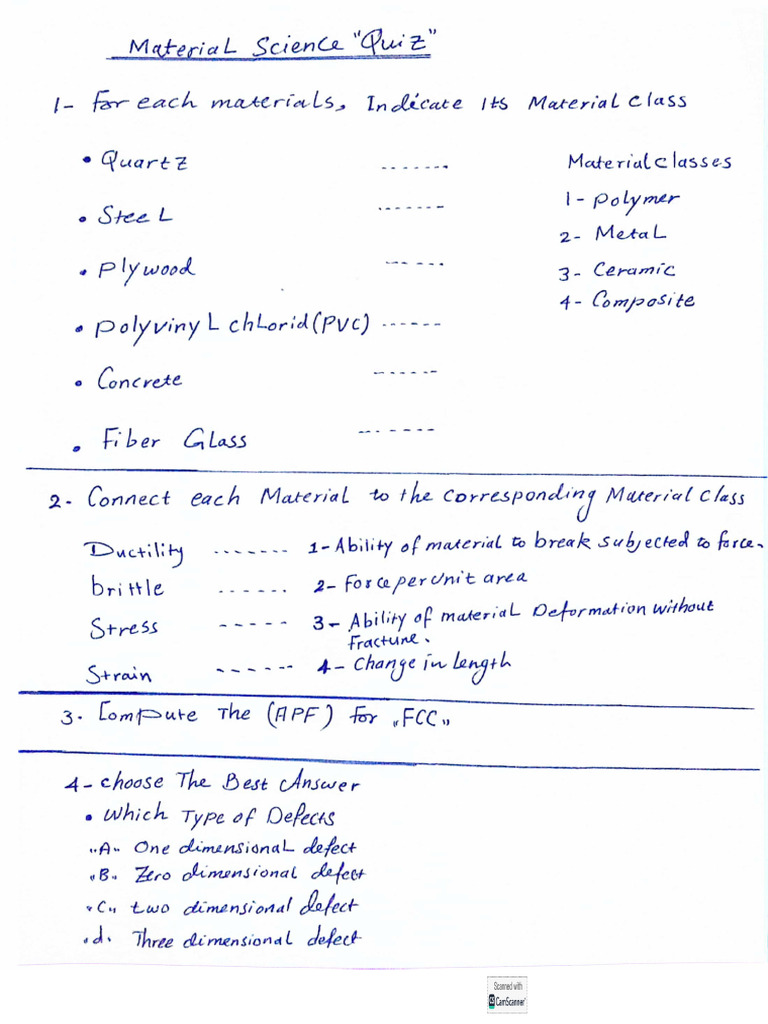 Material Science "Quiz"
1- For each materials, Indicate Its Material class
• Quartz ....... Material classes
1- Polymer
• Steel .......
2- Metal
• Plywood ......
3- Ceramic
4- Composite
• Polyvinyl chlorid (PVC) ......
• Concrete .......
• Fiber Glass .......
2- Connect each Material to the corresponding Material class
Ductility ....... 1- Ability of material to break subjected to force.
brittle ...... 2- Force per unit area
Stress ..... 3- Ability of material Deformation without
fracture.
Strain ...... 4- Change in length
3. Compute The (APF) for "FCC"
4- choose The Best Answer
• Which Type of Defects
"A" One dimensional defect
"B" Zero dimensional defect
"C" two dimensional defect
"d" Three dimensional defect
Scanned with
CS CamScanner